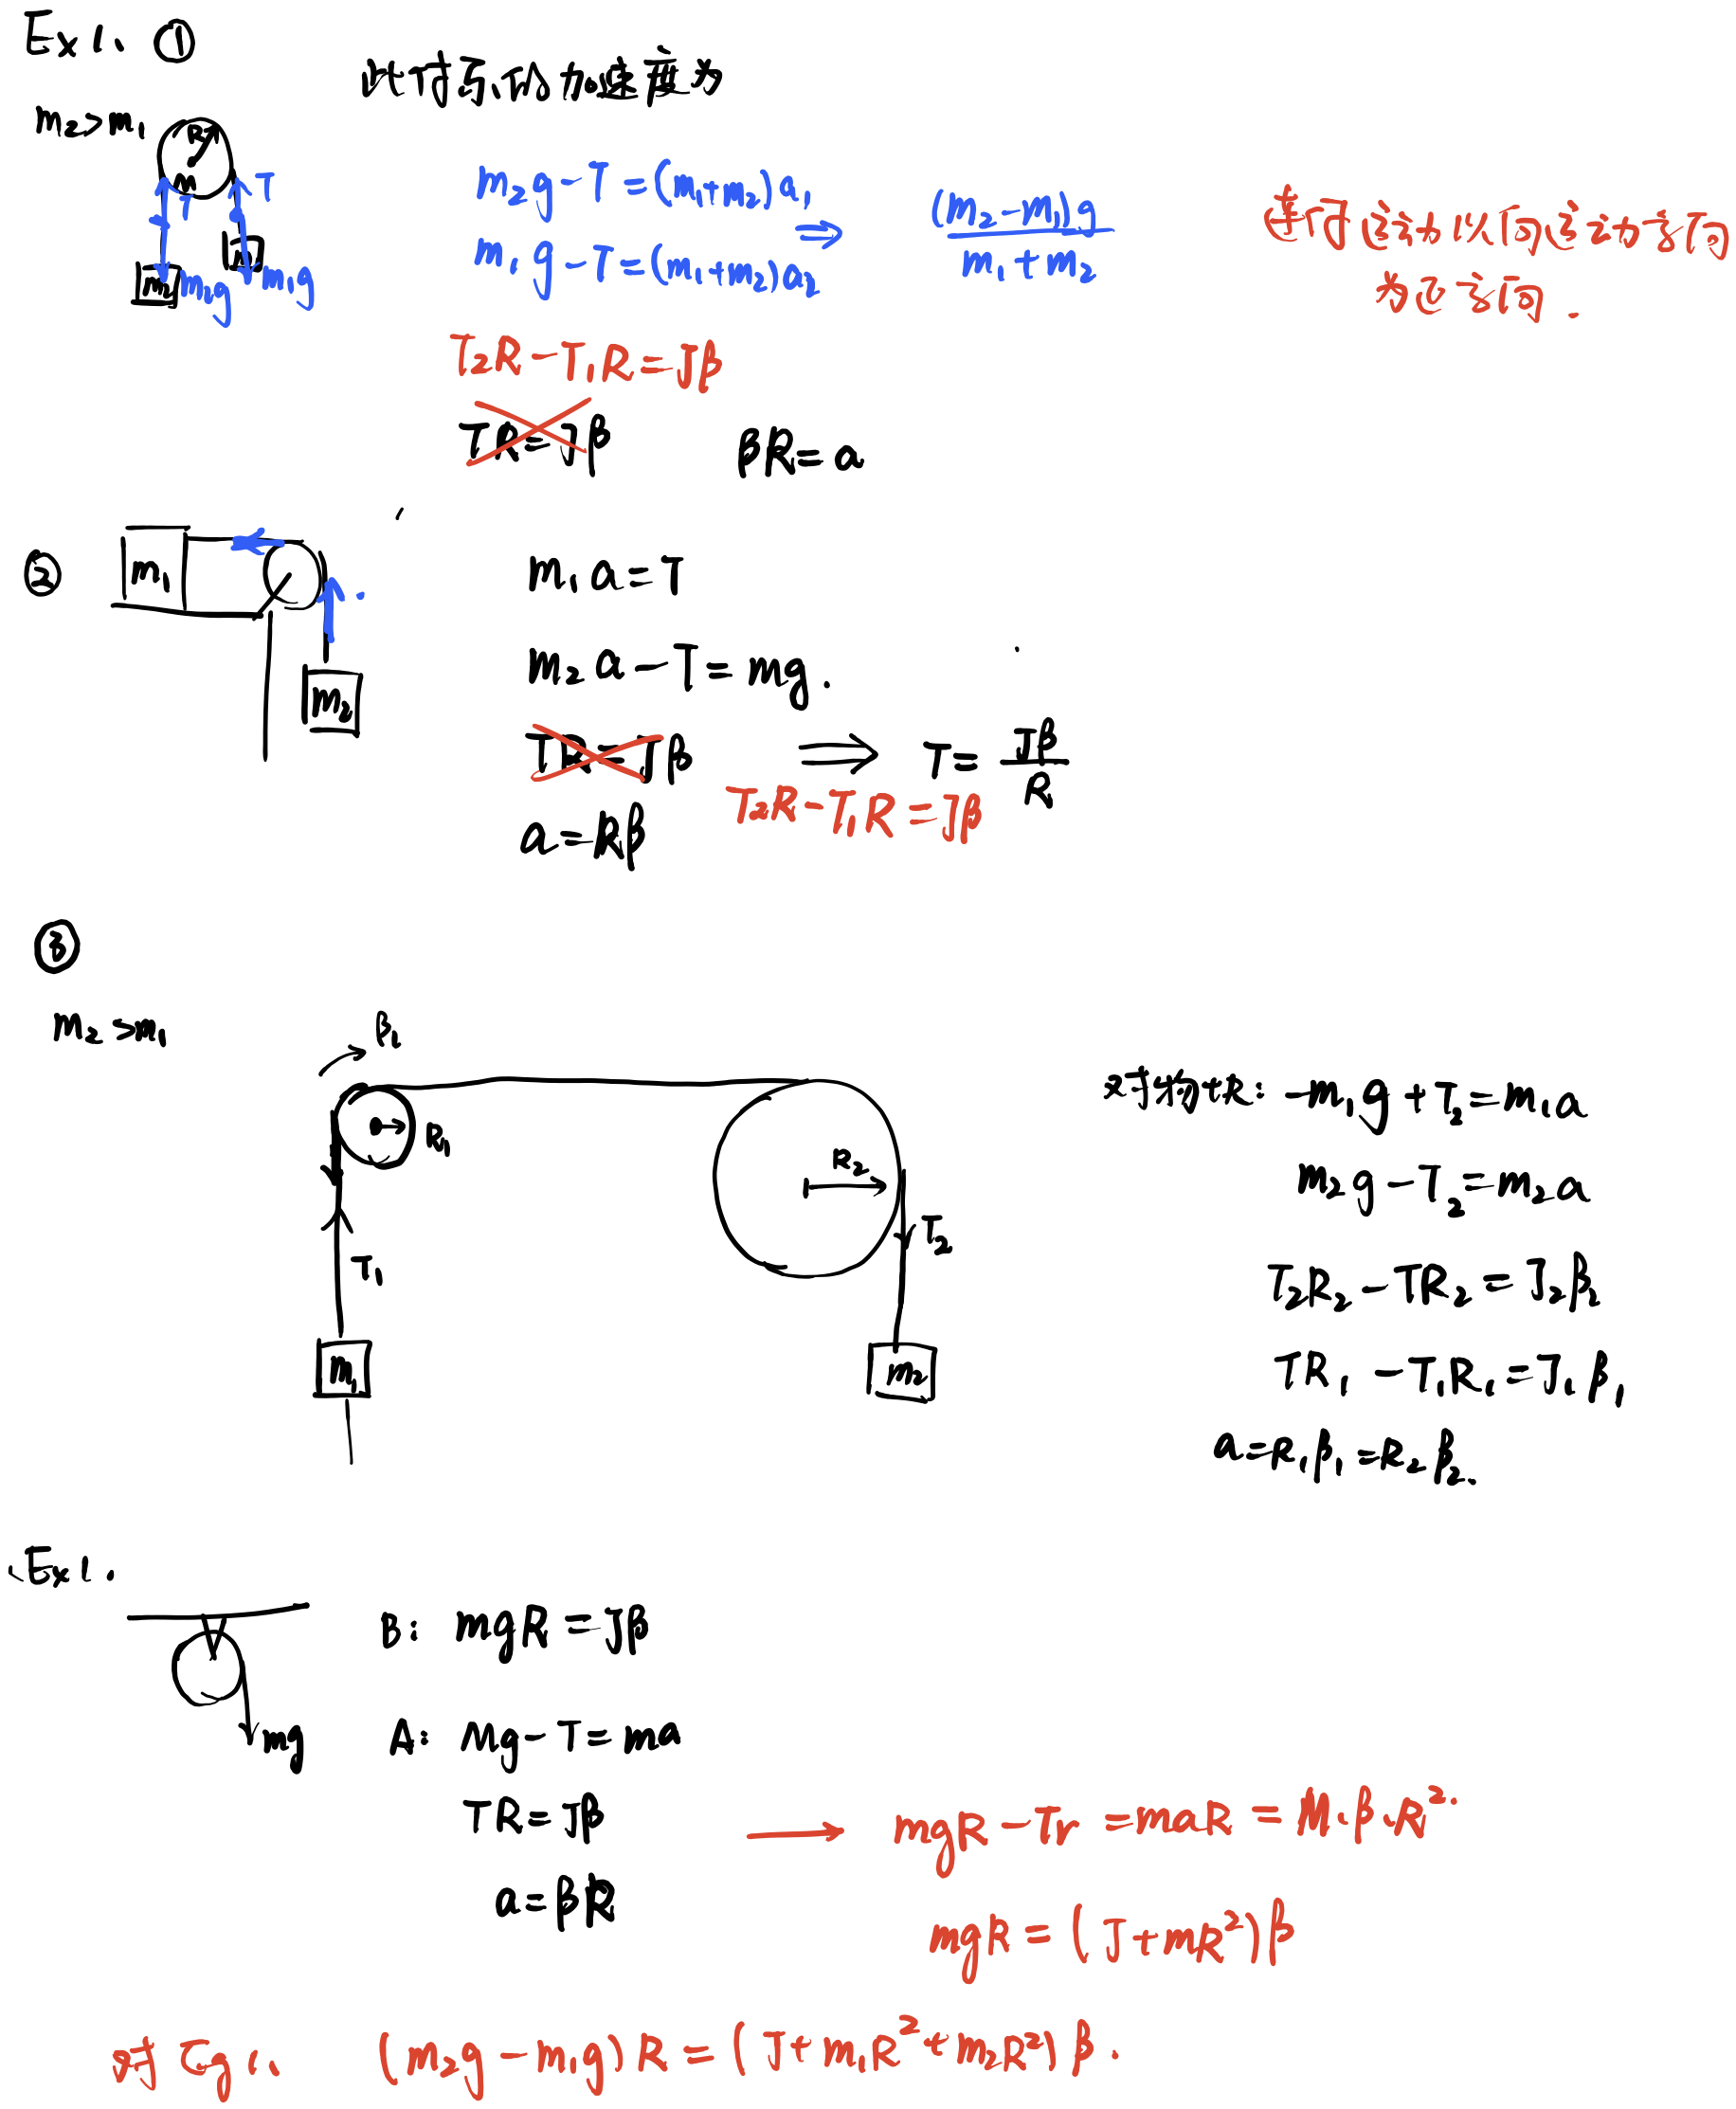 Ex1. ①
此时系统加速度为
m₂>m₁
R
M
T
T
m₁
m₂
m₂g
m₁g
m₂g-T=(m₁+m₂)a₁
m₁g-T=(m₁+m₂)a₂
⇒ (m₂-m₁)g / m₁+m₂
运动以向运动方向
为正方向.
T₂R-T₁R=Jβ
TR=Jβ βR=a
②
m₁
m₂
m₁a=T
m₂a-T=mg.
TR=Jβ ⇒ T= Jβ/R
T₂R-T₁R=Jβ
a=Rβ
③
m₂>m₁
β₁
R₁
R₂
T₁
T₂
m₁
m₂
对物块: -m₁g+T₂=m₁a
m₂g-T₂=m₂a
T₂R₂-TR₂=J₂β₂
TR₁-T₁R₁=J₁β₁
a=R₁β₁=R₂β₂.
Ex1.
mg
B: mgR=Jβ
A: Mg-T=ma
TR=Jβ → mgR-Tr=maR=M·β·R².
a=βR
mgR=(J+mR²)β
对Eg1. (m₂g-m₁g)R=(J+m₁R²+m₂R²)β.